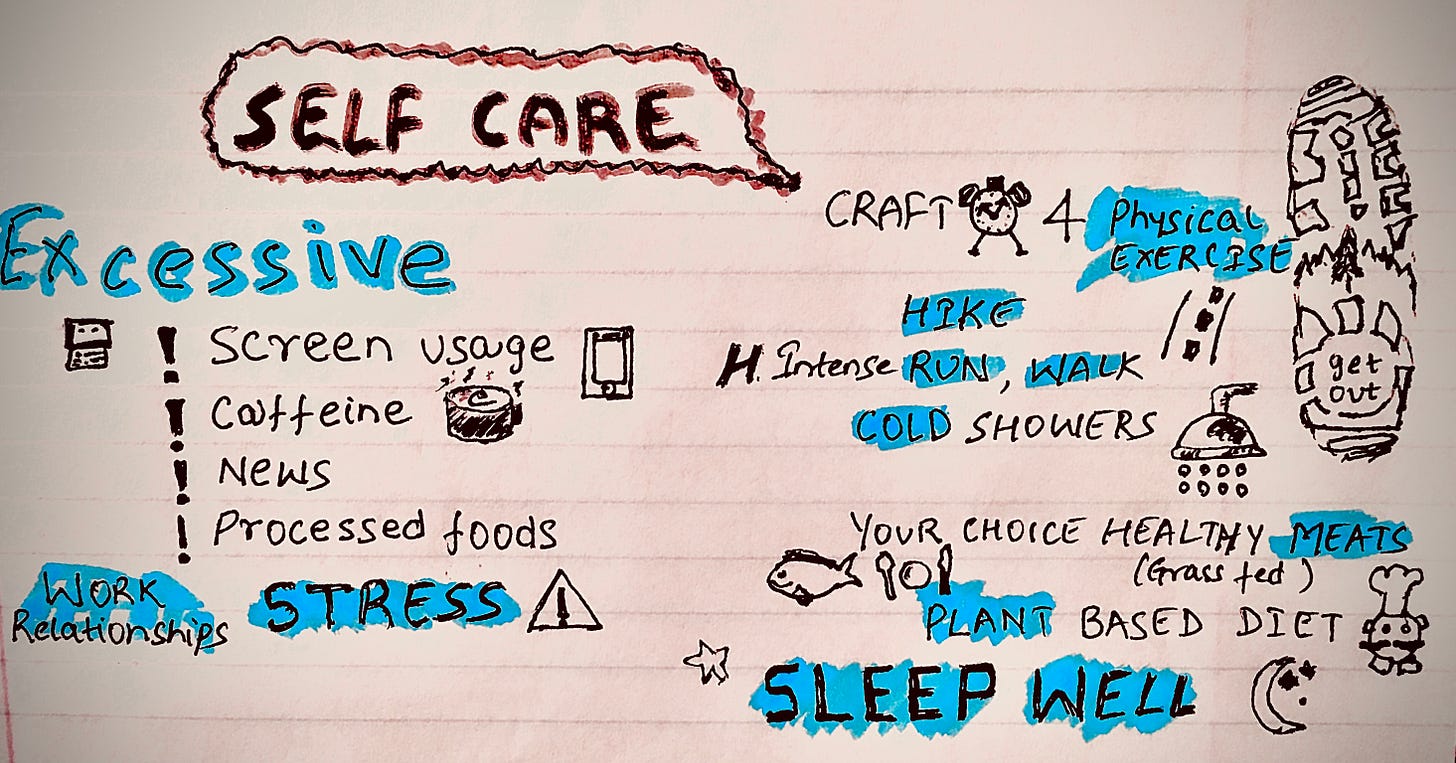 SELF CARE
Excessive
! Screen usage
! Caffeine
! News
! Processed foods
WORK
Relationships
STRESS
!
CRAFT 4 Physical
EXERCISE
HIKE
H. Intense RUN, WALK
COLD SHOWERS
get
out
YOUR CHOICE HEALTHY MEATS
(Grass fed)
PLANT BASED DIET
SLEEP WELL